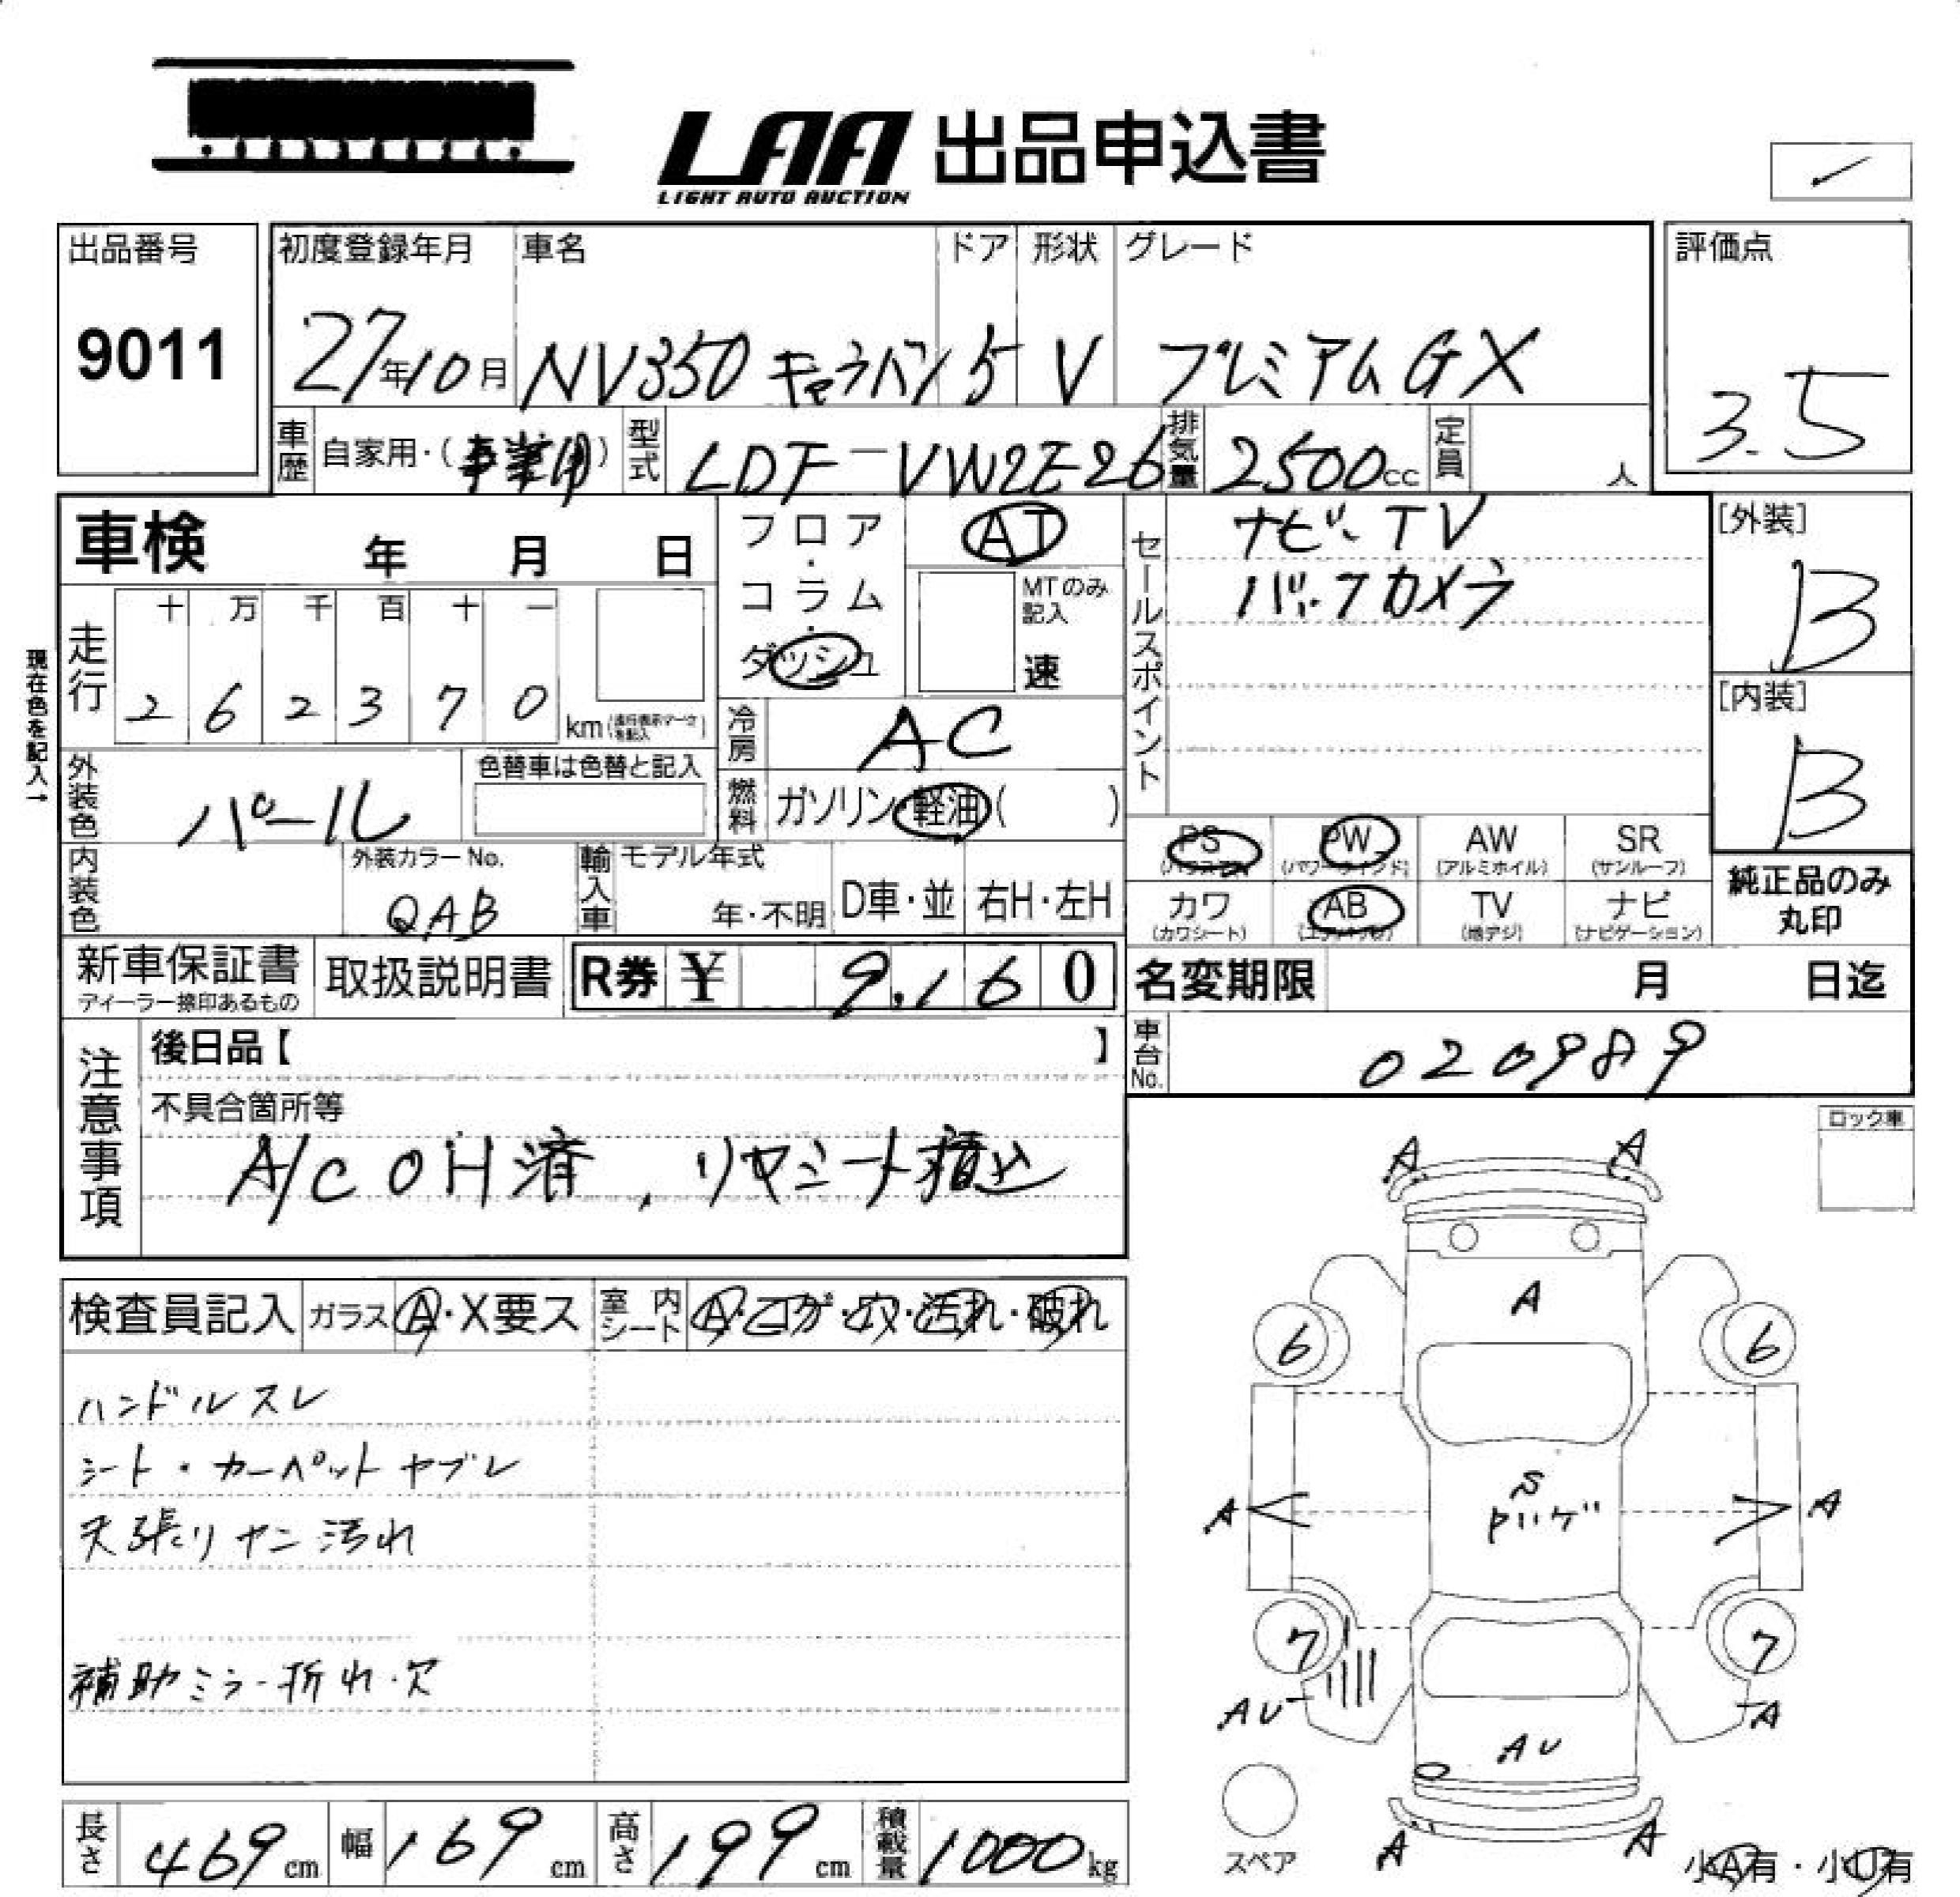 LAA 出品申込書
LIGHT AUTO AUCTION
出品番号
9011
初度登録年月
27年10月
車名
NV350 キャラバン
ドア
5
形状
V
グレード
プレミアムGX
評価点
3.5
車歴
自家用・(事業用)
型式
LDF-VW2E26
排気量
2500cc
定員
人
車検 年 月 日
フロア・コラム・ダッシュ
AT
MTのみ記入
速
セールスポイント
ナビ、TV
バックカメラ
[外装]
B
[内装]
B
現在色を記入→
走行
十 万 千 百 十 一
2 6 2 3 7 0 km
冷房
AC
燃料
ガソリン・軽油( )
外装色
パール
色替車は色替と記入
内装色
外装カラーNo.
QAB
輸入車
モデル年式
年・不明
D車・並
右H・左H
PS PW AW SR
(パワステ) (パワーウインド) (アルミホイル) (サンルーフ)
カワ AB TV ナビ
(カワシート) (エアバッグ) (地デジ) (ナビゲーション)
純正品のみ
丸印
新車保証書
ディーラー捺印あるもの
取扱説明書
R券 ¥ 9,160
名変期限 月 日迄
車台No.
020989
注意事項
後日品【 】
不具合箇所等
A/C OH済、リヤシート積込
ロック車
検査員記入
ガラス
A・X要ス
室内シート
A・コゲ・穴・汚れ・破れ
ハンドルスレ
シート・カーペットヤブレ
天張りヤニ汚れ
補助ミラー折れ・欠
A A
A
6 6
S
A A
7 7
AU A
AU
A A
スペア
小A有・小U有
長さ 469cm
幅 169cm
高さ 199cm
積載量 1000kg